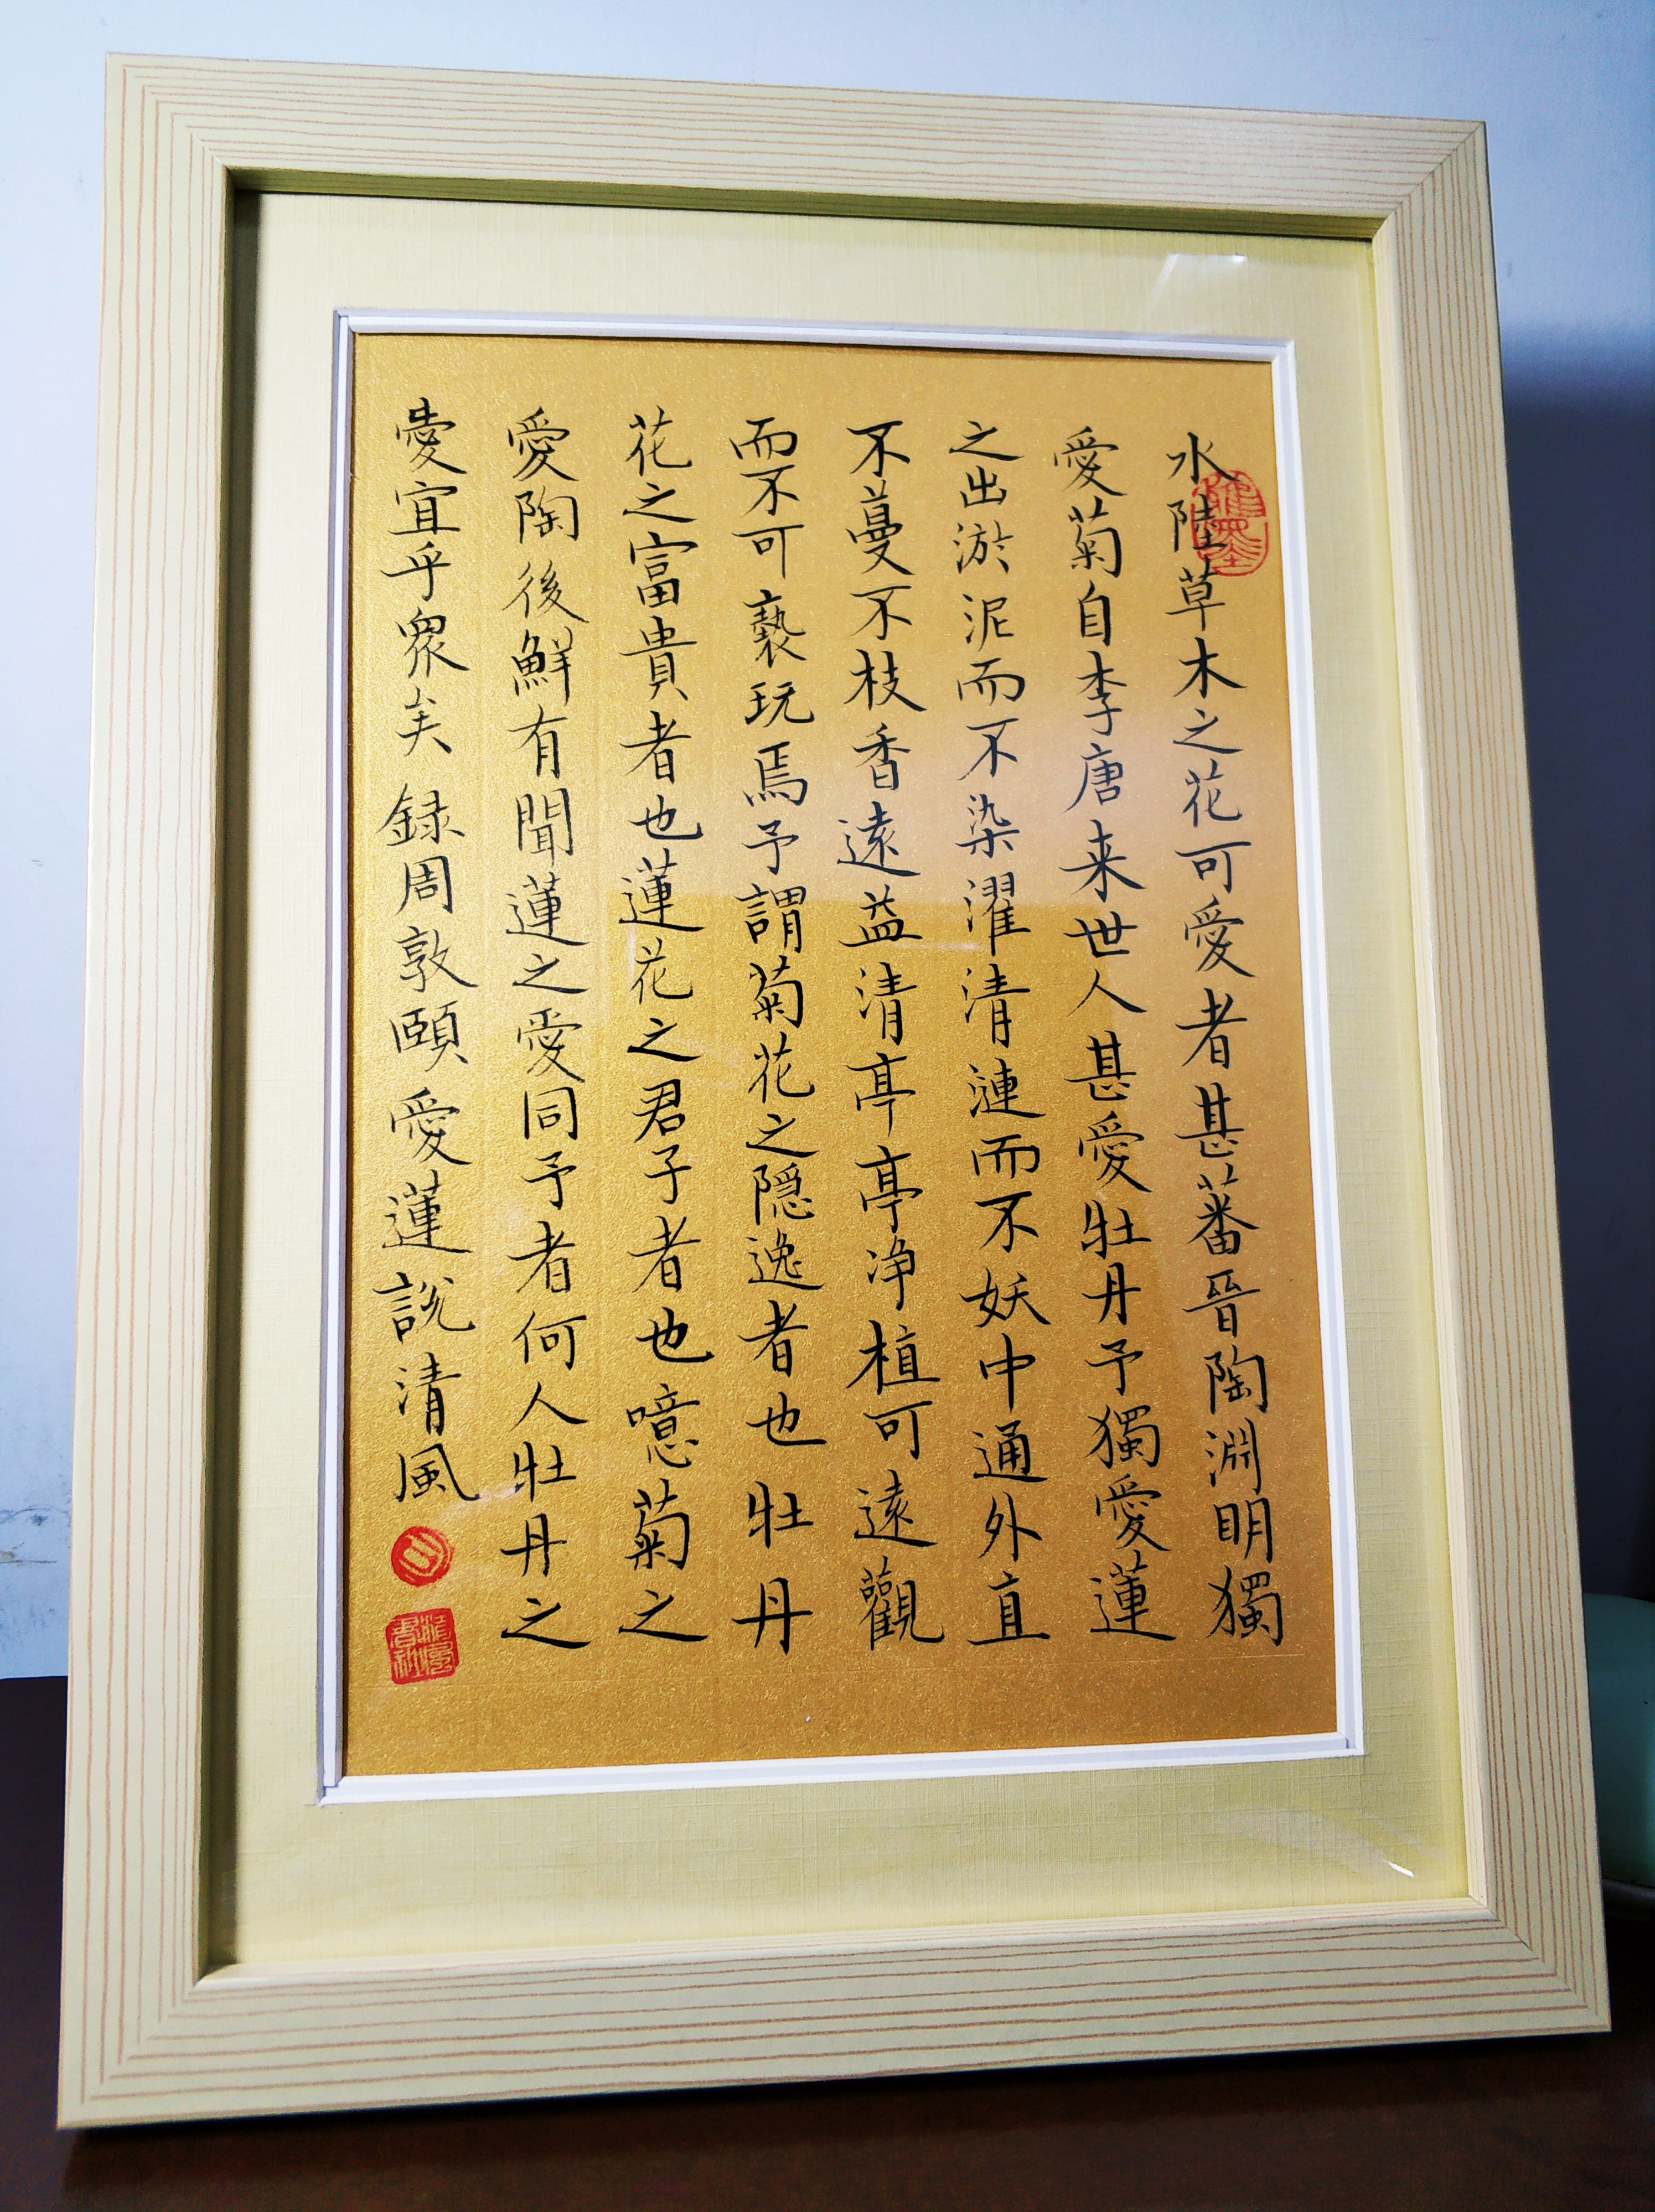 水陸草木之花可愛者甚蕃晉陶淵明獨
愛菊自李唐来世人甚愛牡丹予獨愛蓮
之出淤泥而不染濯清漣而不妖中通外直
不蔓不枝香遠益清亭亭净植可遠觀
而不可褻玩焉予謂菊花之隠逸者也牡丹
花之富貴者也蓮花之君子者也噫菊之
愛陶後鮮有聞蓮之愛同予者何人牡丹之
愛宜乎眾矣録周敦頤愛蓮説清風